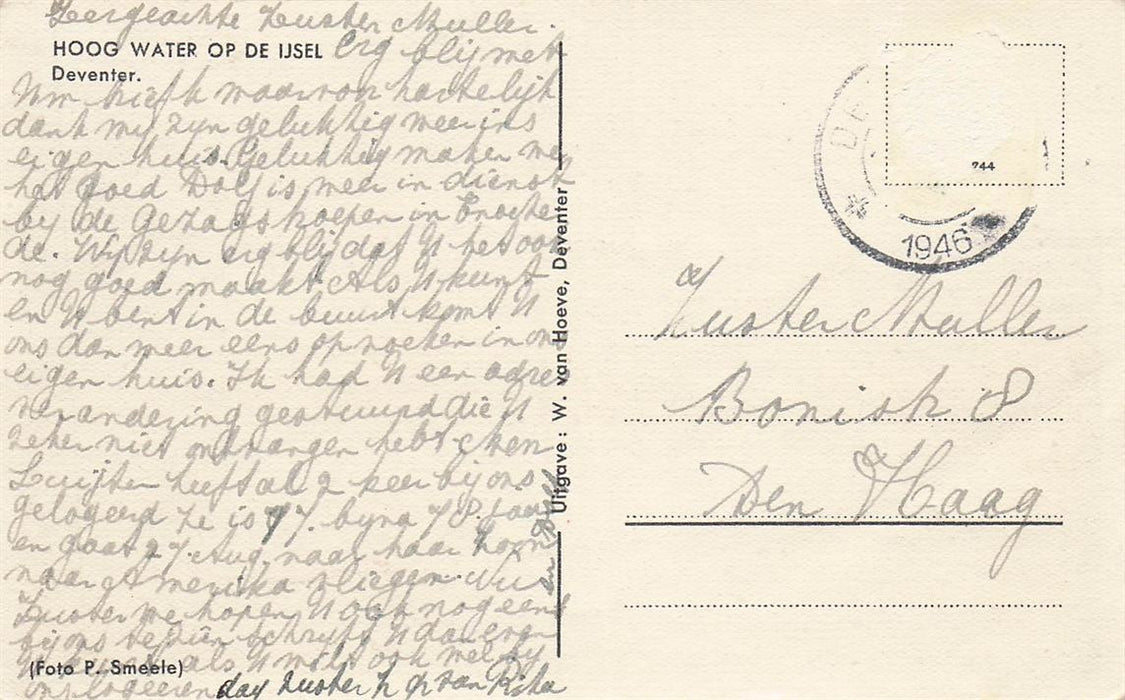 Zeergeachte Zuster Muller.
HOOG WATER OP DE IJSEL Erg blij met
Deventer.
Uw brief waarvoor hartelijk
dank wij zijn gelukkig weer in ons
eigen huis. Gelukkig maken we
het goed Dolf is weer in dienst
bij de Gezagstroepen in Ensche
de. Wij zijn erg blij dat U het ook
nog goed maakt Als U kunt
en U bent in de buurt komt U
ons dan weer eens opzoeken in ons
eigen huis. Ik had U een adres
verandering gestuurd die U
zeker niet ontvangen hebt
heeft al 2 keer bij ons
gelogeerd ze is 77. bijna 78 jaar
en gaat 27 Aug. naar haar zoon
naar Amerika vliegen. Nu
Zuster we hopen U ook nog eens
bij ons te zien schrijft U dan even
als U wilt ook wel bij
ons logeeren dag Zuster van Rika
(Foto P. Smeele)
Uitgave: W. van Hoeve, Deventer
744
1946
Zuster Muller
8
Den Haag